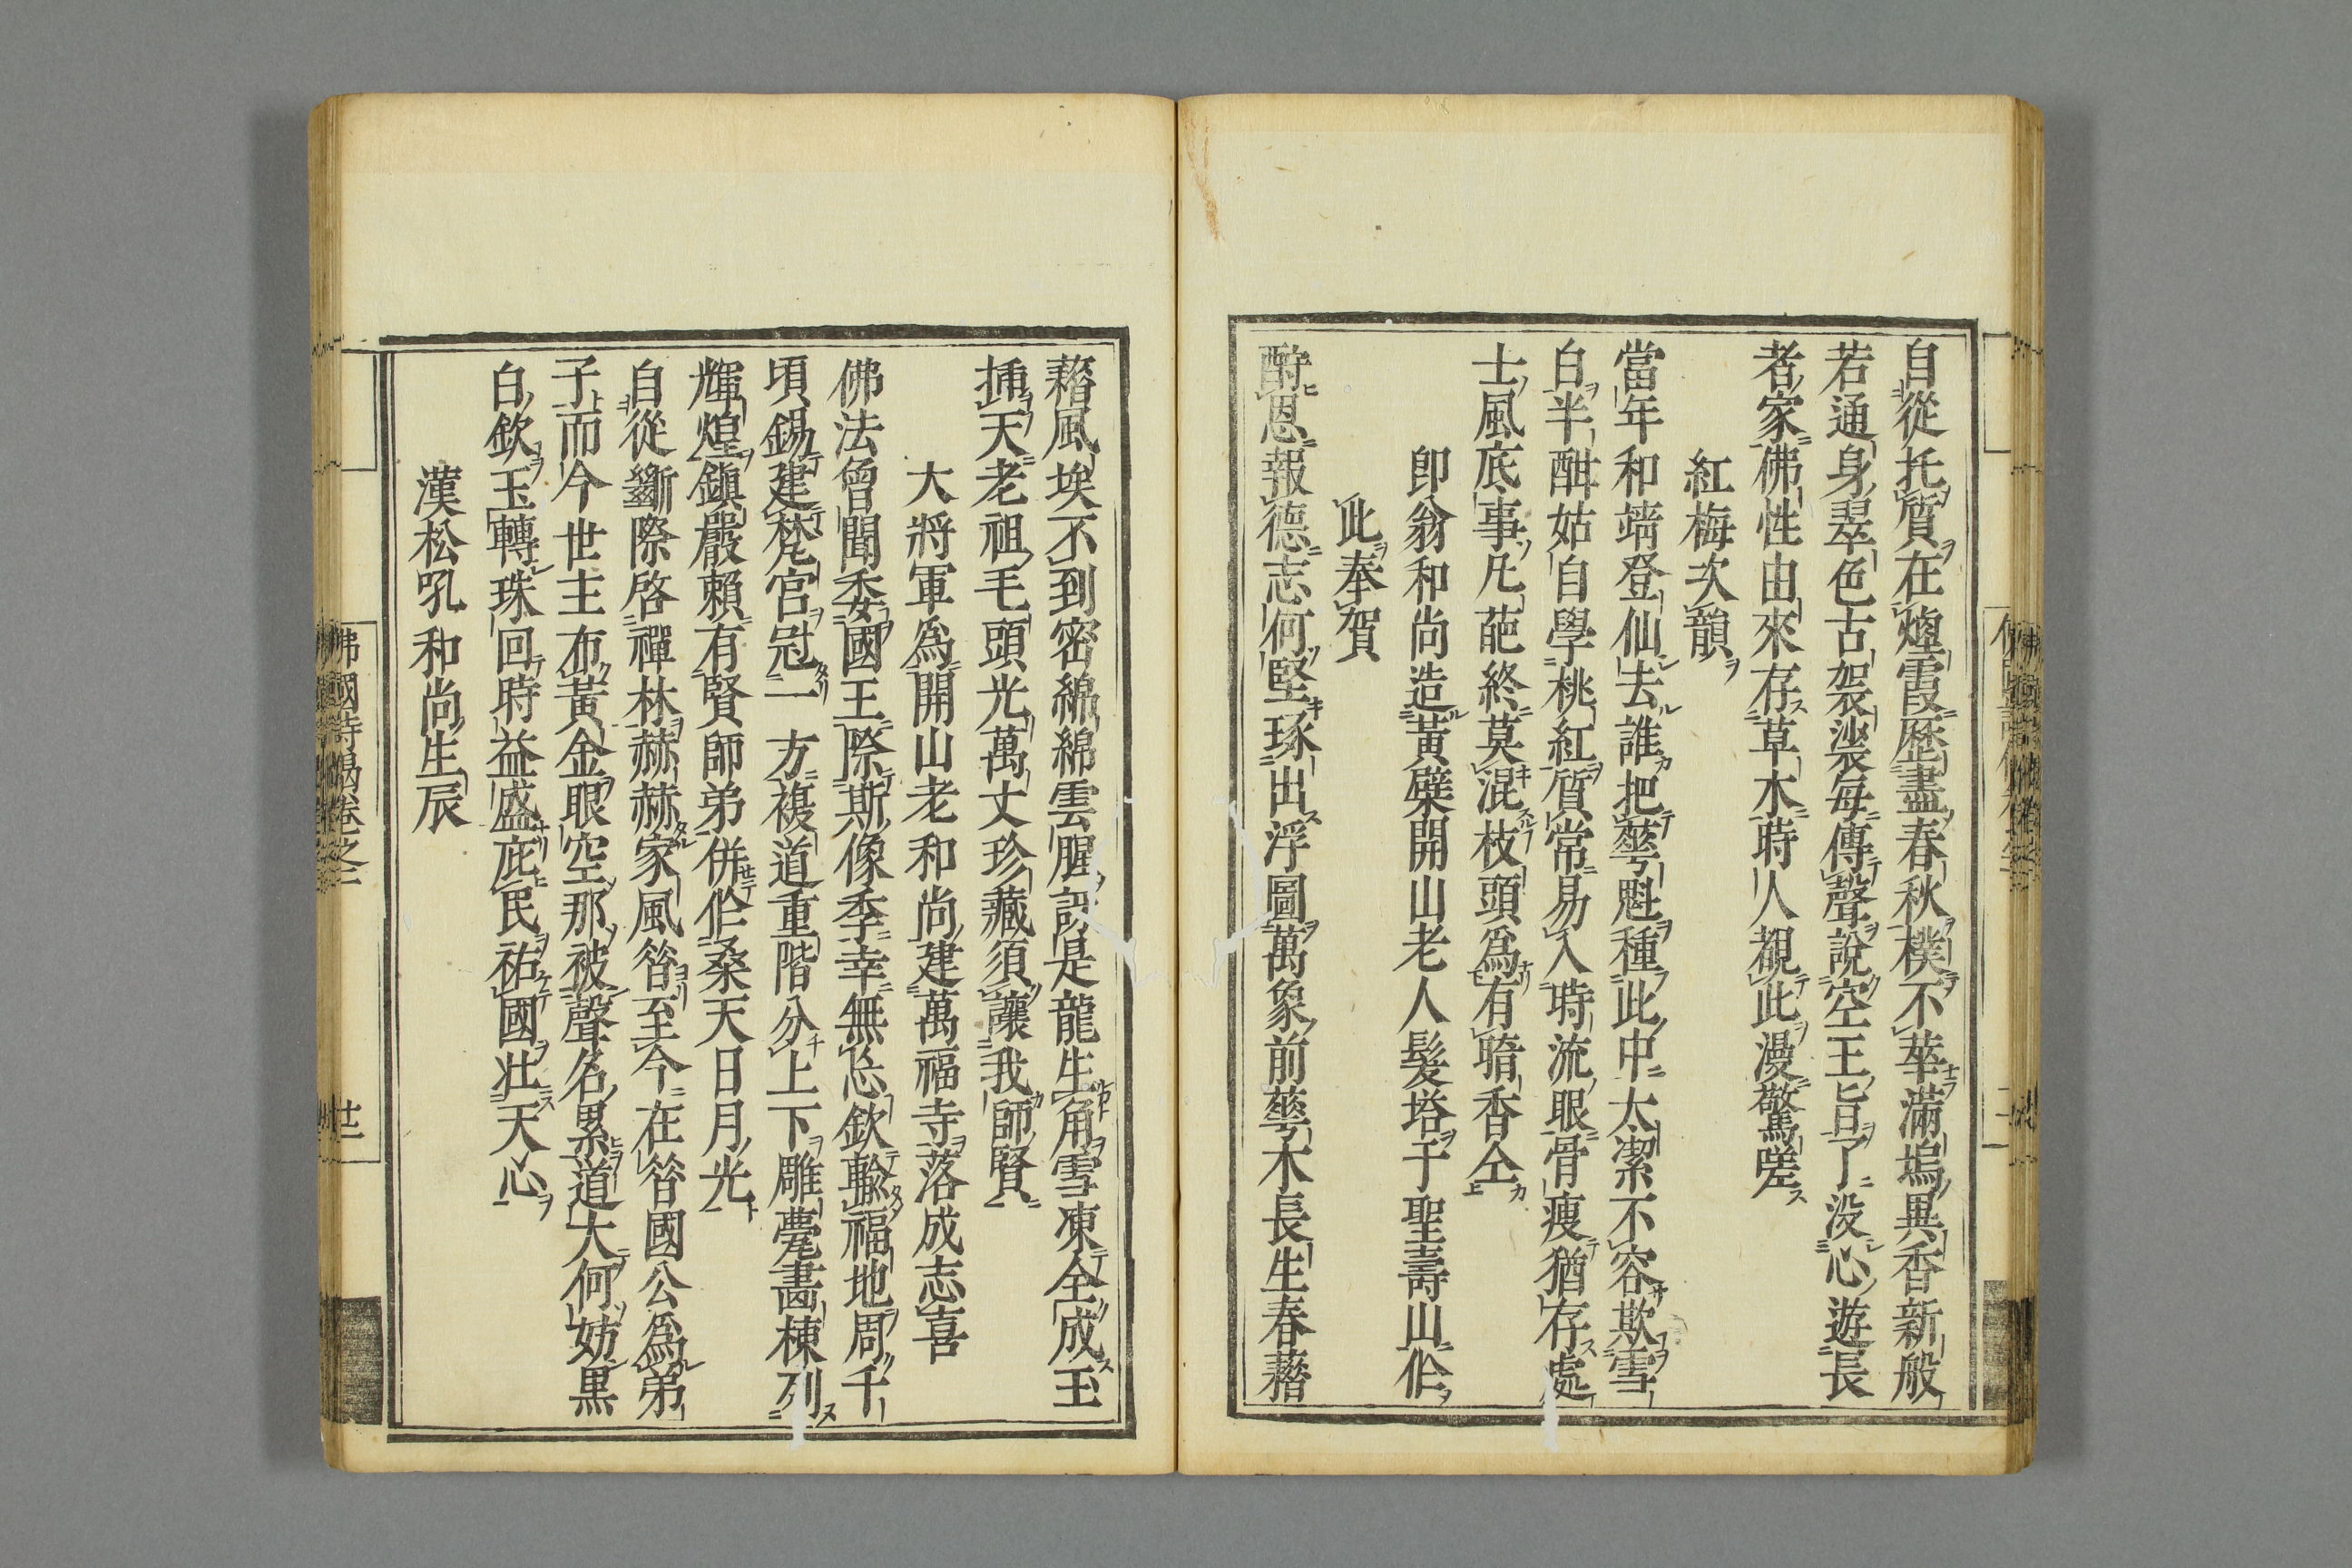 自從托質在煙霞歷盡春秋樸不華滿塢異香新般
若通身翠色古袈裟每傳聲說空王旨了沒心遊長
者家佛性由來存草木時人覩此漫驚嗟
紅梅次韻
當年和靖登仙去誰把華魁種此中太潔不容欺雪
白半酣姑自學桃紅質常易入時流眼骨瘦猶存處
士風底事凡葩終莫混枝頭爲有暗香仝
即翁和尚造黃檗開山老人髮塔于聖壽山作
此奉賀
酧恩報德志何堅琢出浮圖萬象前華木長生春藹
藹風埃不到密綿綿雲腥認是龍生角雪凍全成玉
揷天老祖毛頭光萬丈珍藏須讓我師賢
大將軍爲開山老和尚建萬福寺落成志喜
佛法曾聞委國王際斯像季幸無忘欽輸福地周千
頃錫建梵宮冠一方複道重階分上下雕甍畫棟列
輝煌鎭嚴賴有賢師弟併作桑天日月光
自從斷際啓禪林赫赫家風昝至今在昝國公爲弟
子而今世主布黃金眼空那被聲名累道大何妨黑
白欽玉轉珠回時益盛庇民祐國壯天心
漢松吼和尚生辰
佛國詩偈卷之二
廿二